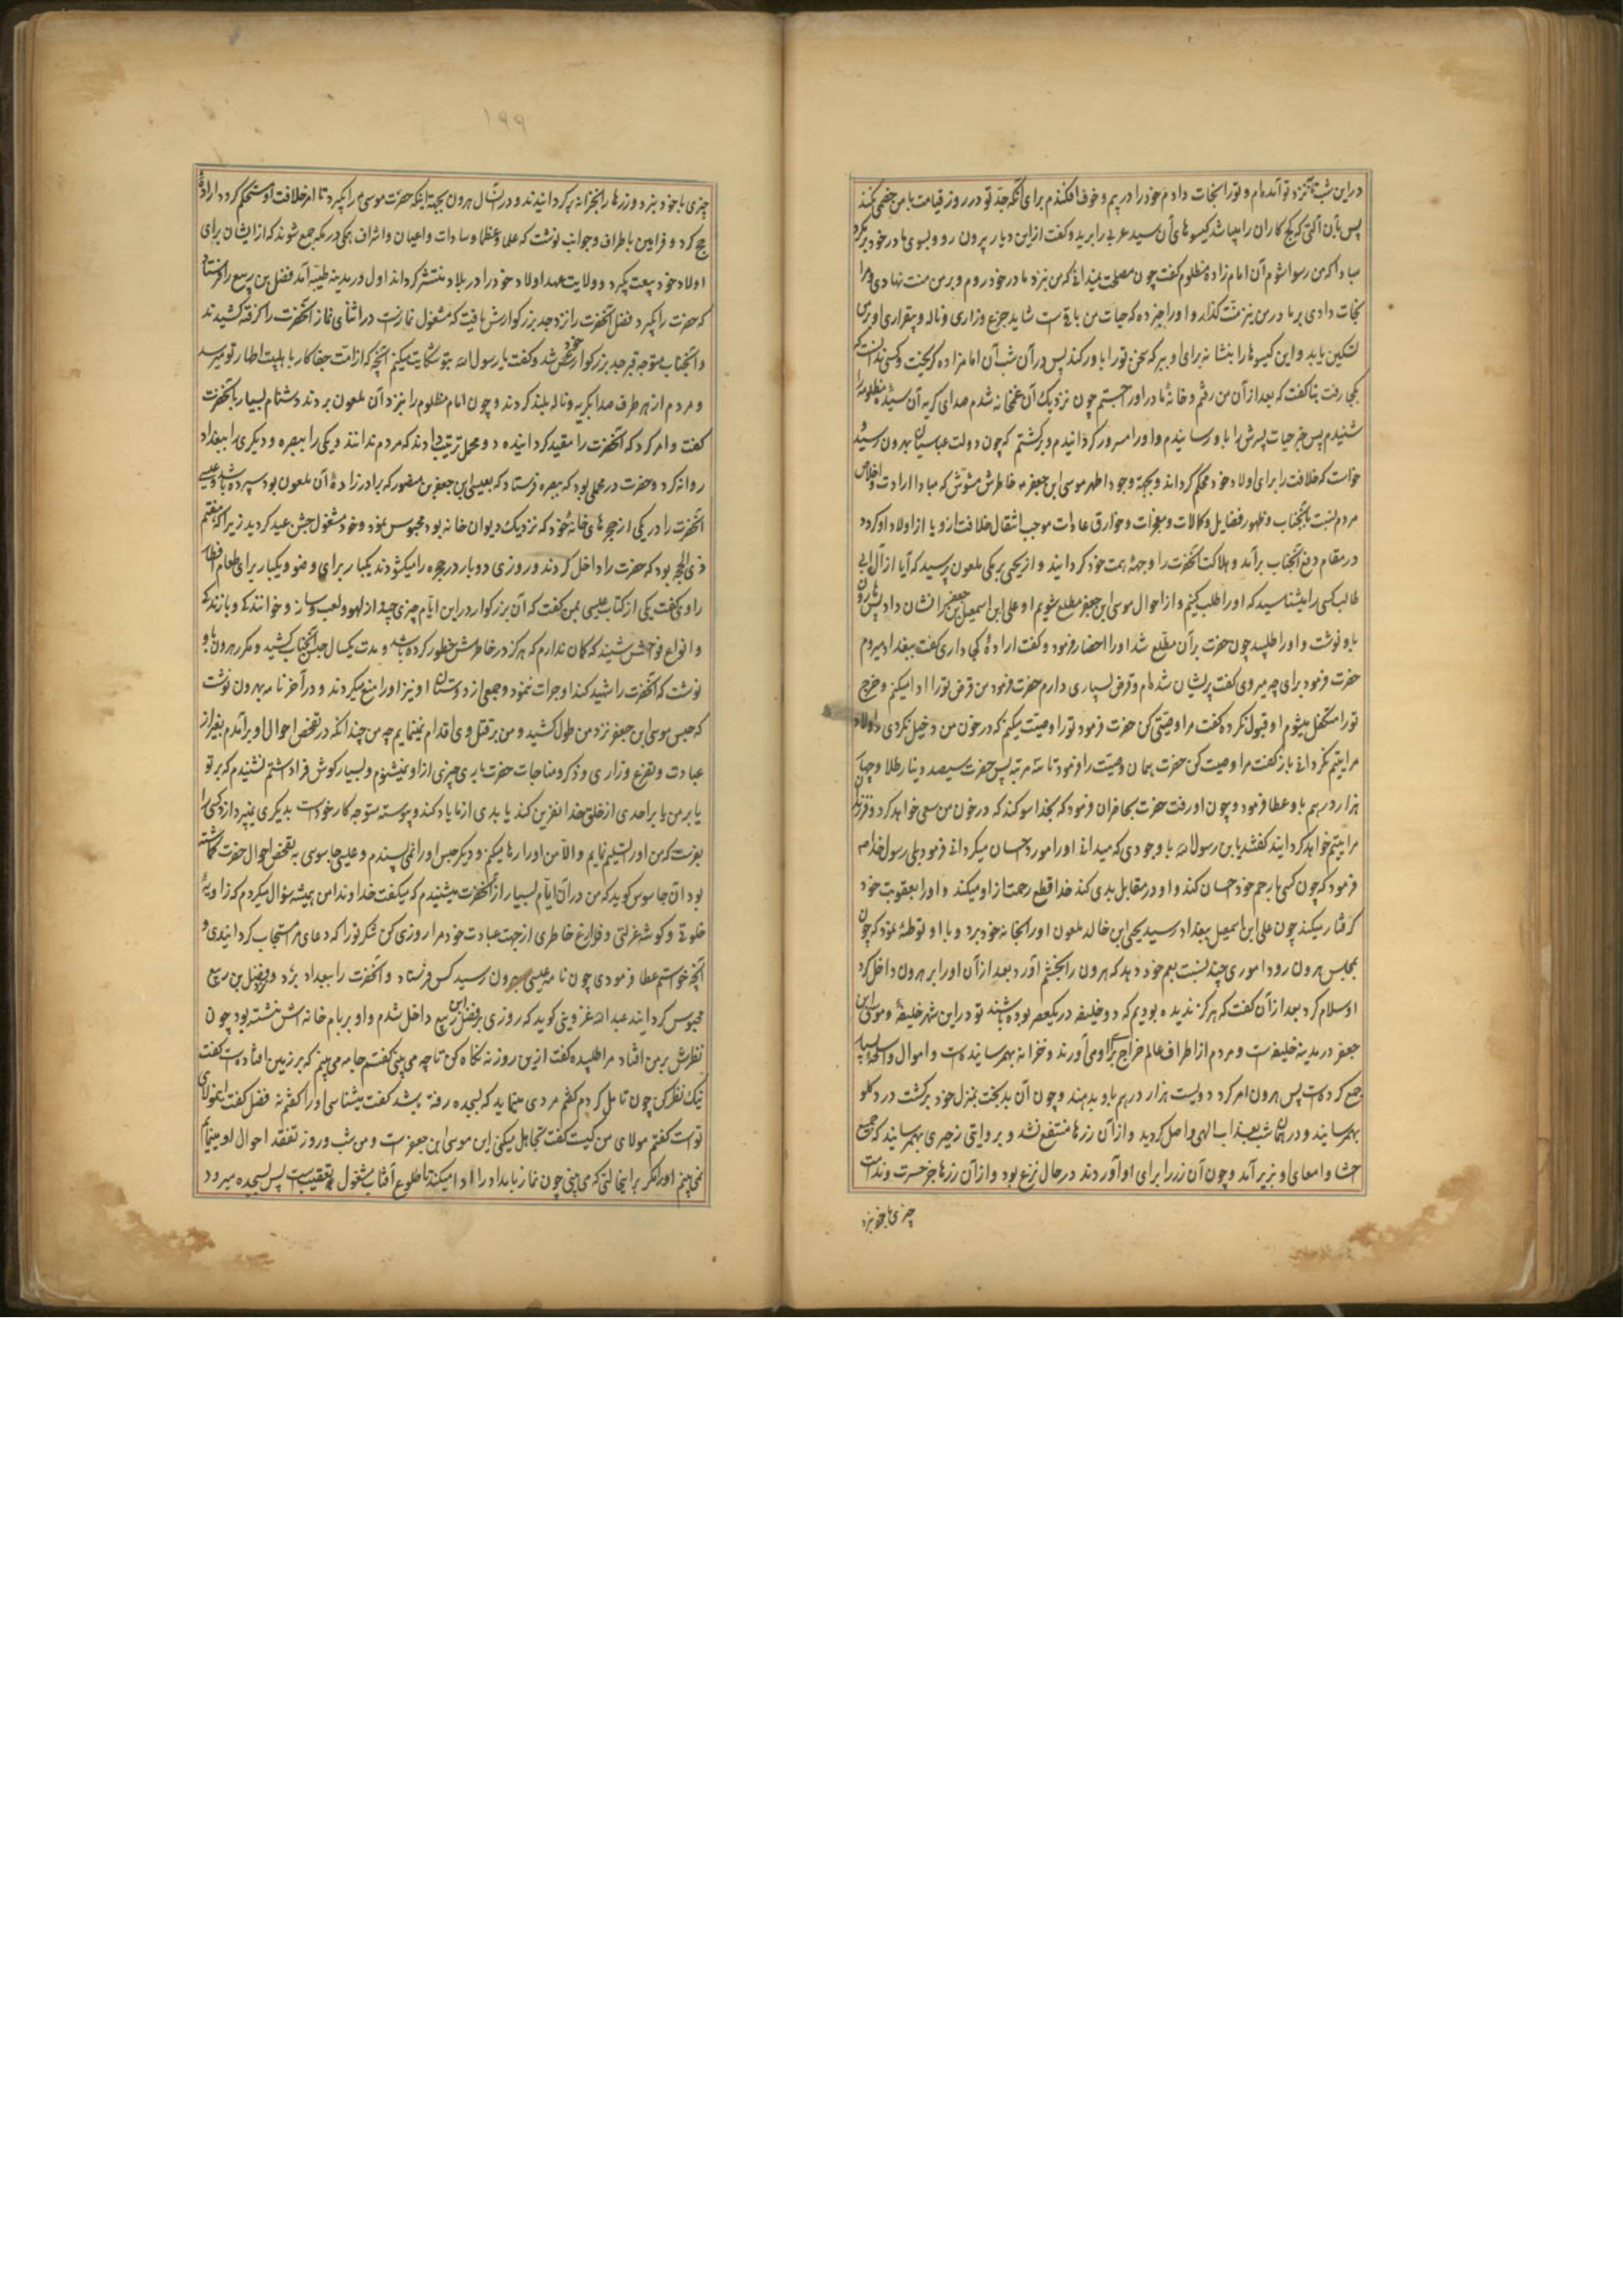 در این شب نزد تو آمده‌ام و تو را نجات دادم خود را در بیم و خوف افکندم برای آنکه جد تو در روز قیامت با من خصمی نکند
پس بآن آلتی که گچ کاران را میباشد گیسوهای آن سید عربی را برید و گفت از این دیار بیرون رو و بسوی مادر خود برمگرد
مبادا که من رسوا شوم آن امام زاده مظلوم گفت چون مصلحت نمیدانی که من بنزد مادر خود روم و بر من منت نهادی و مرا
نجات دادی بر مادر من نیز منت گذار و او را خبر ده که حیات من باقیست شاید جزع و زاری و ناله و بیقراری او بر من
تسکین یابد و این گیسوها را بنشانه برای او ببر که سخن تو را باور کند پس در آن شب آن امامزاده گریخت و کسی ندانست که
بکجا رفت بنا گفت که بعد از آن من رفتم و خانهٔ مادر او را جستم چون نزدیک آن غمخانه شدم صدای گریه آن سیدهٔ مظلومه را
شنیدم پس خبر حیات پسرش را باو رسانیدم و او را مسرور گردانیدم و برگشتم که چون دولت عباسیان بهرون رسید
خواست که خلافت را برای اولاد خود محکم گرداند و بجهة وجود اطهر موسی ابن جعفر خاطرش مشوش که مبادا ارادت و اخلاص
مردم نسبت بآنجناب و ظهور فضایل و کمالات و معجزات و خوارق عادات موجب انتقال خلافت از و یا از اولاد او گردد
در مقام دفع آنجناب برآمد و هلاکت آنحضرت را وجههٔ همت خود گردانید و از یحیی برمکی ملعون پرسید که آیا از آل ابی
طالب کسی را میشناسید که او را طلب کنیم و از احوال موسی ابن جعفر مطلع شویم او علی ابن اسمعیل بن جعفر را نشان داد پس هارون
باو نوشت و او را طلبید چون حضرت بر آن مطلع شد او را احضار فرمود و گفت ارادهٔ کجا داری گفت ببغداد میروم
حضرت فرمود برای چه میروی گفت پریشان شده‌ام و قرض بسیاری دارم حضرت فرمود من قرض تو را ادا میکنم و خرج
تو را متکفل میشوم او قبول نکرد و گفت مرا وصیتی کن حضرت فرمود تو را وصیت میکنم که در خون من دخیل نگردی و اولاد
مرا یتیم نگردانی باز گفت مرا وصیت کن حضرت همان وصیت را فرمود تا سه مرتبه پس حضرت سیصد دینار طلا و چهار
هزار درهم باو عطا فرمود و چون او رفت حضرت بحاضران فرمود که بخدا سوگند که در خون من سعی خواهد کرد و فرزندان
مرا یتیم خواهد گردانید گفتند یابن رسول الله با وجودی که میدانی او را مورد احسان میگردانی فرمود بلی رسول خدا ص
فرمود که چون کسی با رحم خود احسان کند و او در مقابل بدی کند خدا قطع رحمت از او میکند و او را بعقوبت خود
گرفتار میکند چون علی ابن اسمعیل ببغداد رسید یحیی ابن خالد ملعون او را بخانه خود برد و با او توطئه نمود که چون
بمجلس هرون رود اموری چند نسبت بعم خود دهد که هرون را بخشم آورد بعد از آن او را بر هرون داخل کرد
او سلام کرد بعد از آن گفت که هرگز ندیده بودیم که دو خلیفه در یکعصر بوده باشند تو در این شهر خلیفهٔ و موسی ابن
جعفر در مدینه خلیفه است و مردم از اطراف عالم خراج برای او می‌آورند و خزانه بهمرسانیده است و اموال و اسلحه بسیار
جمع کرده است پس هرون امر کرد دویست هزار درهم باو بدهند و چون آن بدبخت بمنزل خود برگشت درد گلو
بهمرسانید و در همان شب بعذاب الهی واصل گردید و از آن زرها منتفع نشد و بروایتی زحیری بهمرسانید که جمیع
احشا و امعای او بزیر آمد و چون آن زر را برای او آوردند در حال نزع بود و از آن زرها جز حسرت و ندامت
چیزی با خود نبرد
۱۹۹
چیزی با خود نبرد و زرها را بخزانه برگردانیدند و در آنسال هرون بجهة اینکه حضرت موسی را بگیرد تا امر خلافت او مستحکم گردد اراده
حج کرد و فرامین باطراف و جوانب نوشت که علما و عظما و سادات و اعیان و اشراف همگی در مکه جمع شوند که از ایشان برای
اولاد خود بیعت بگیرد و ولایت عهد اولاد خود را در بلاد منتشر گرداند اول در مدینه طیبه آمد فضل بن ربیع را فرستاد
که حضرت را بگیرد فضل آنحضرت را نزد جد بزرگوارش یافت که مشغول نماز است در اثنای نماز آنحضرت را گرفته کشیدند
و آنجناب متوجه قبر جد بزرگوار خود شد و گفت یا رسول الله بتو شکایت میکنم آنچه که از امت جفاکار باهلبیت اطهار تو میرسد
و مردم از هر طرف صدا بگریه و ناله بلند کردند و چون امام مظلوم را بنزد آن ملعون بردند دشنام بسیار بآنحضرت
گفت و امر کرد که آنحضرت را مقید گردانیده دو محمل ترتیب دادند که مردم ندانند و یکی را ببصره و دیگری را ببغداد
روانه کرد و حضرت در محملی بود که ببصره فرستاد که بعیسی ابن جعفر بن منصور که برادرزادهٔ آن ملعون بود سپرده باشد و عیسی
آنحضرت را در یکی از حجره‌های خانهٔ خود که نزدیک دیوان خانه بود محبوس نمود و خود مشغول جشن عید گردید زیرا که هفتم
ذی الحجه بود که حضرت را داخل کردند و روزی دوبار در حجره را میگشودند یکبار برای وضو و یکبار برای طعام افطار
راوی گفت یکی از کتاب عیسی بمن گفت که آن بزرگوار در این ایام چیزی چند از لهو و لعب و ساز و خوانندکی و بازندکی
و انواع فواحش شنید که گمان ندارم که هرگز در خاطرش خطور کرده باشد و مدت یکسال حبس آنجناب کشید و مکرر هرون باو
نوشت که آنحضرت را شهید کند او جرات ننمود و جمعی از دوستان او نیز او را منع میکردند و در آخر نامه بهرون نوشت
که حبس موسی ابن جعفر نزد من طول کشید و من بر قتل وی اقدام نمینمایم چه من چندانکه در تفحص احوال او برآمدم بغیر از
عبادت و تضرع و زاری و ذکر و مناجات حضرت باری چیزی از او نمیشنوم و بسیار گوش فرا داشتم نشنیدم که بر تو
یا بر من یا بر احدی از خلق خدا نفرین کند یا بدی از ما یاد کند و پیوسته متوجه کار خود است بدیگری نمیپردازد کسی را
بفرست که من او را تسلیم نمایم والا من او را رها میکنم و دیگر حبس او را نمی پسندم و عیسی جاسوسی به تفحص احوال حضرت گماشته
بود آن جاسوس گوید که من در آن ایام بسیار از آنحضرت میشنیدم که میگفت خداوندا من همیشه سؤال میکردم که زاویهٔ
خلوتی و گوشهٔ عزلتی و فارغ خاطری از جهت عبادت خود مرا روزی کن شکر تو را که دعای مرا مستجاب گردانیدی و
آنچه خواستم عطا فرمودی چون نامه عیسی بهرون رسید کس فرستاد و آنحضرت را ببغداد برد و نزد فضل بن ربیع
محبوس گردانید عبدالله غزوینی گوید که روزی بر فضل ابن ربیع داخل شدم و او بر بام خانه اش نشسته بود چون
نظرش بر من افتاد مرا طلبیده گفت ازین روزنه نگاه کن تا چه می بینی گفتم جامه می بینم که بر زمین افتاده است گفت
نیک نظر کن چون تامل کردم گفتم مردی مینماید که بسجده رفته باشد گفت میشناسی او را گفتم نه فضل گفت این مولای
تو است گفتم مولای من کیست گفت تجاهل میکنی این موسی ابن جعفر است و من شب و روز تفقد احوال او مینمایم
نمی بینم او را مگر براینحالتی که می بینی چون نماز بامداد را ادا میکند تا طلوع آفتاب مشغول تعقیب است پس بسجده میرود